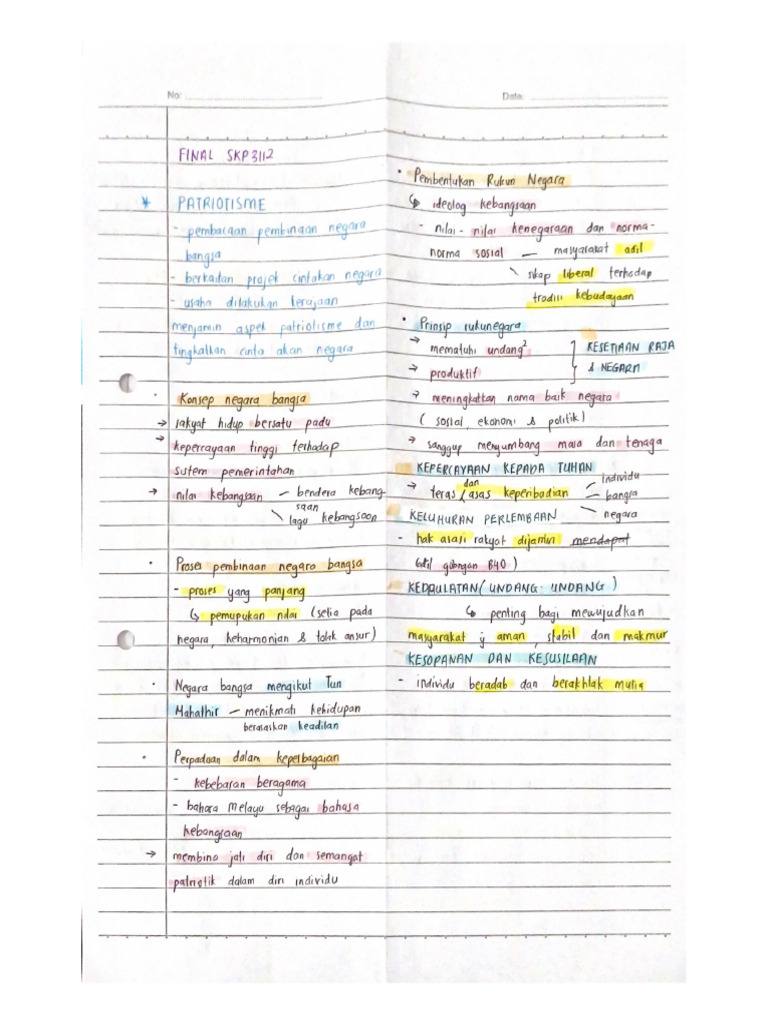 No:
FINAL SKP3112
* PATRIOTISME
- pembacaan pembinaan negara
bangsa
- berkaitan projek cintakan negara
- usaha dilakukan kerajaan
menjamin aspek patriotisme dan
tingkatkan cinta akan negara
• Konsep negara bangsa
→ rakyat hidup bersatu padu
→ kepercayaan tinggi terhadap
sistem pemerintahan
→ nilai kebangsaan - bendera kebang
saan
lagu kebangsaan
• Proses pembinaan negara bangsa
- proses yang panjang
↳ pemupukan nilai (setia pada
negara, keharmonian & tolak ansur)
• Negara bangsa mengikut Tun
Mahathir - menikmati kehidupan
berasaskan keadilan
• Perpaduan dalam kepelbagaian
- kebebaran beragama
- bahasa Melayu sebagai bahasa
kebangsaan
→ membina jati diri dan semangat
patriotik dalam diri individu
Date:
• Pembentukan Rukun Negara
↳ ideologi kebangsaan
- nilai-nilai kenegaraan dan norma-
norma sosial - masyarakat adil
sikap liberal terhadap
tradisi kebudayaan
• Prinsip rukunegara
→ mematuhi undang² ] KESETIAAN RAJA
→ produktif & NEGARA
→ meningkatkan nama baik negara
(sosial, ekonomi & politik)
→ sanggup menyumbang masa dan tenaga
KEPERCAYAAN KEPADA TUHAN
→ teras dan asas keperibadian - individu
- bangsa
- negara
KELUHURAN PERLEMBAAN
- hak asasi rakyat dijamin mendapat
golongan B40)
KEDAULATAN (UNDANG-UNDANG)
↳ penting bagi mewujudkan
masyarakat yg aman, stabil dan makmur
KESOPANAN DAN KESUSILAAN
- individu beradab dan berakhlak mulia